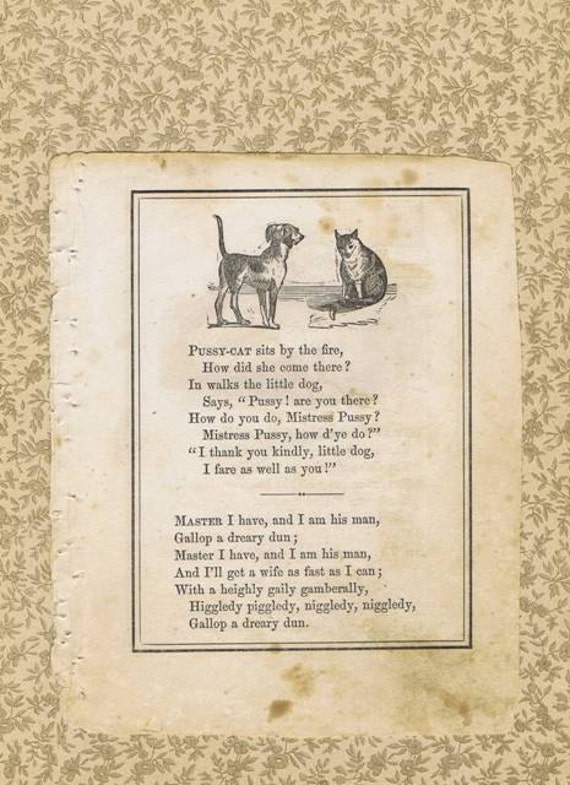 PUSSY-CAT sits by the fire,
How did she come there?
In walks the little dog,
Says, “Pussy! are you there?
How do you do, Mistress Pussy?
Mistress Pussy, how d'ye do?”
“I thank you kindly, little dog,
I fare as well as you!”
MASTER I have, and I am his man,
Gallop a dreary dun;
Master I have, and I am his man,
And I'll get a wife as fast as I can;
With a heighly gaily gamberally,
Higgledy piggledy, niggledy, niggledy,
Gallop a dreary dun.